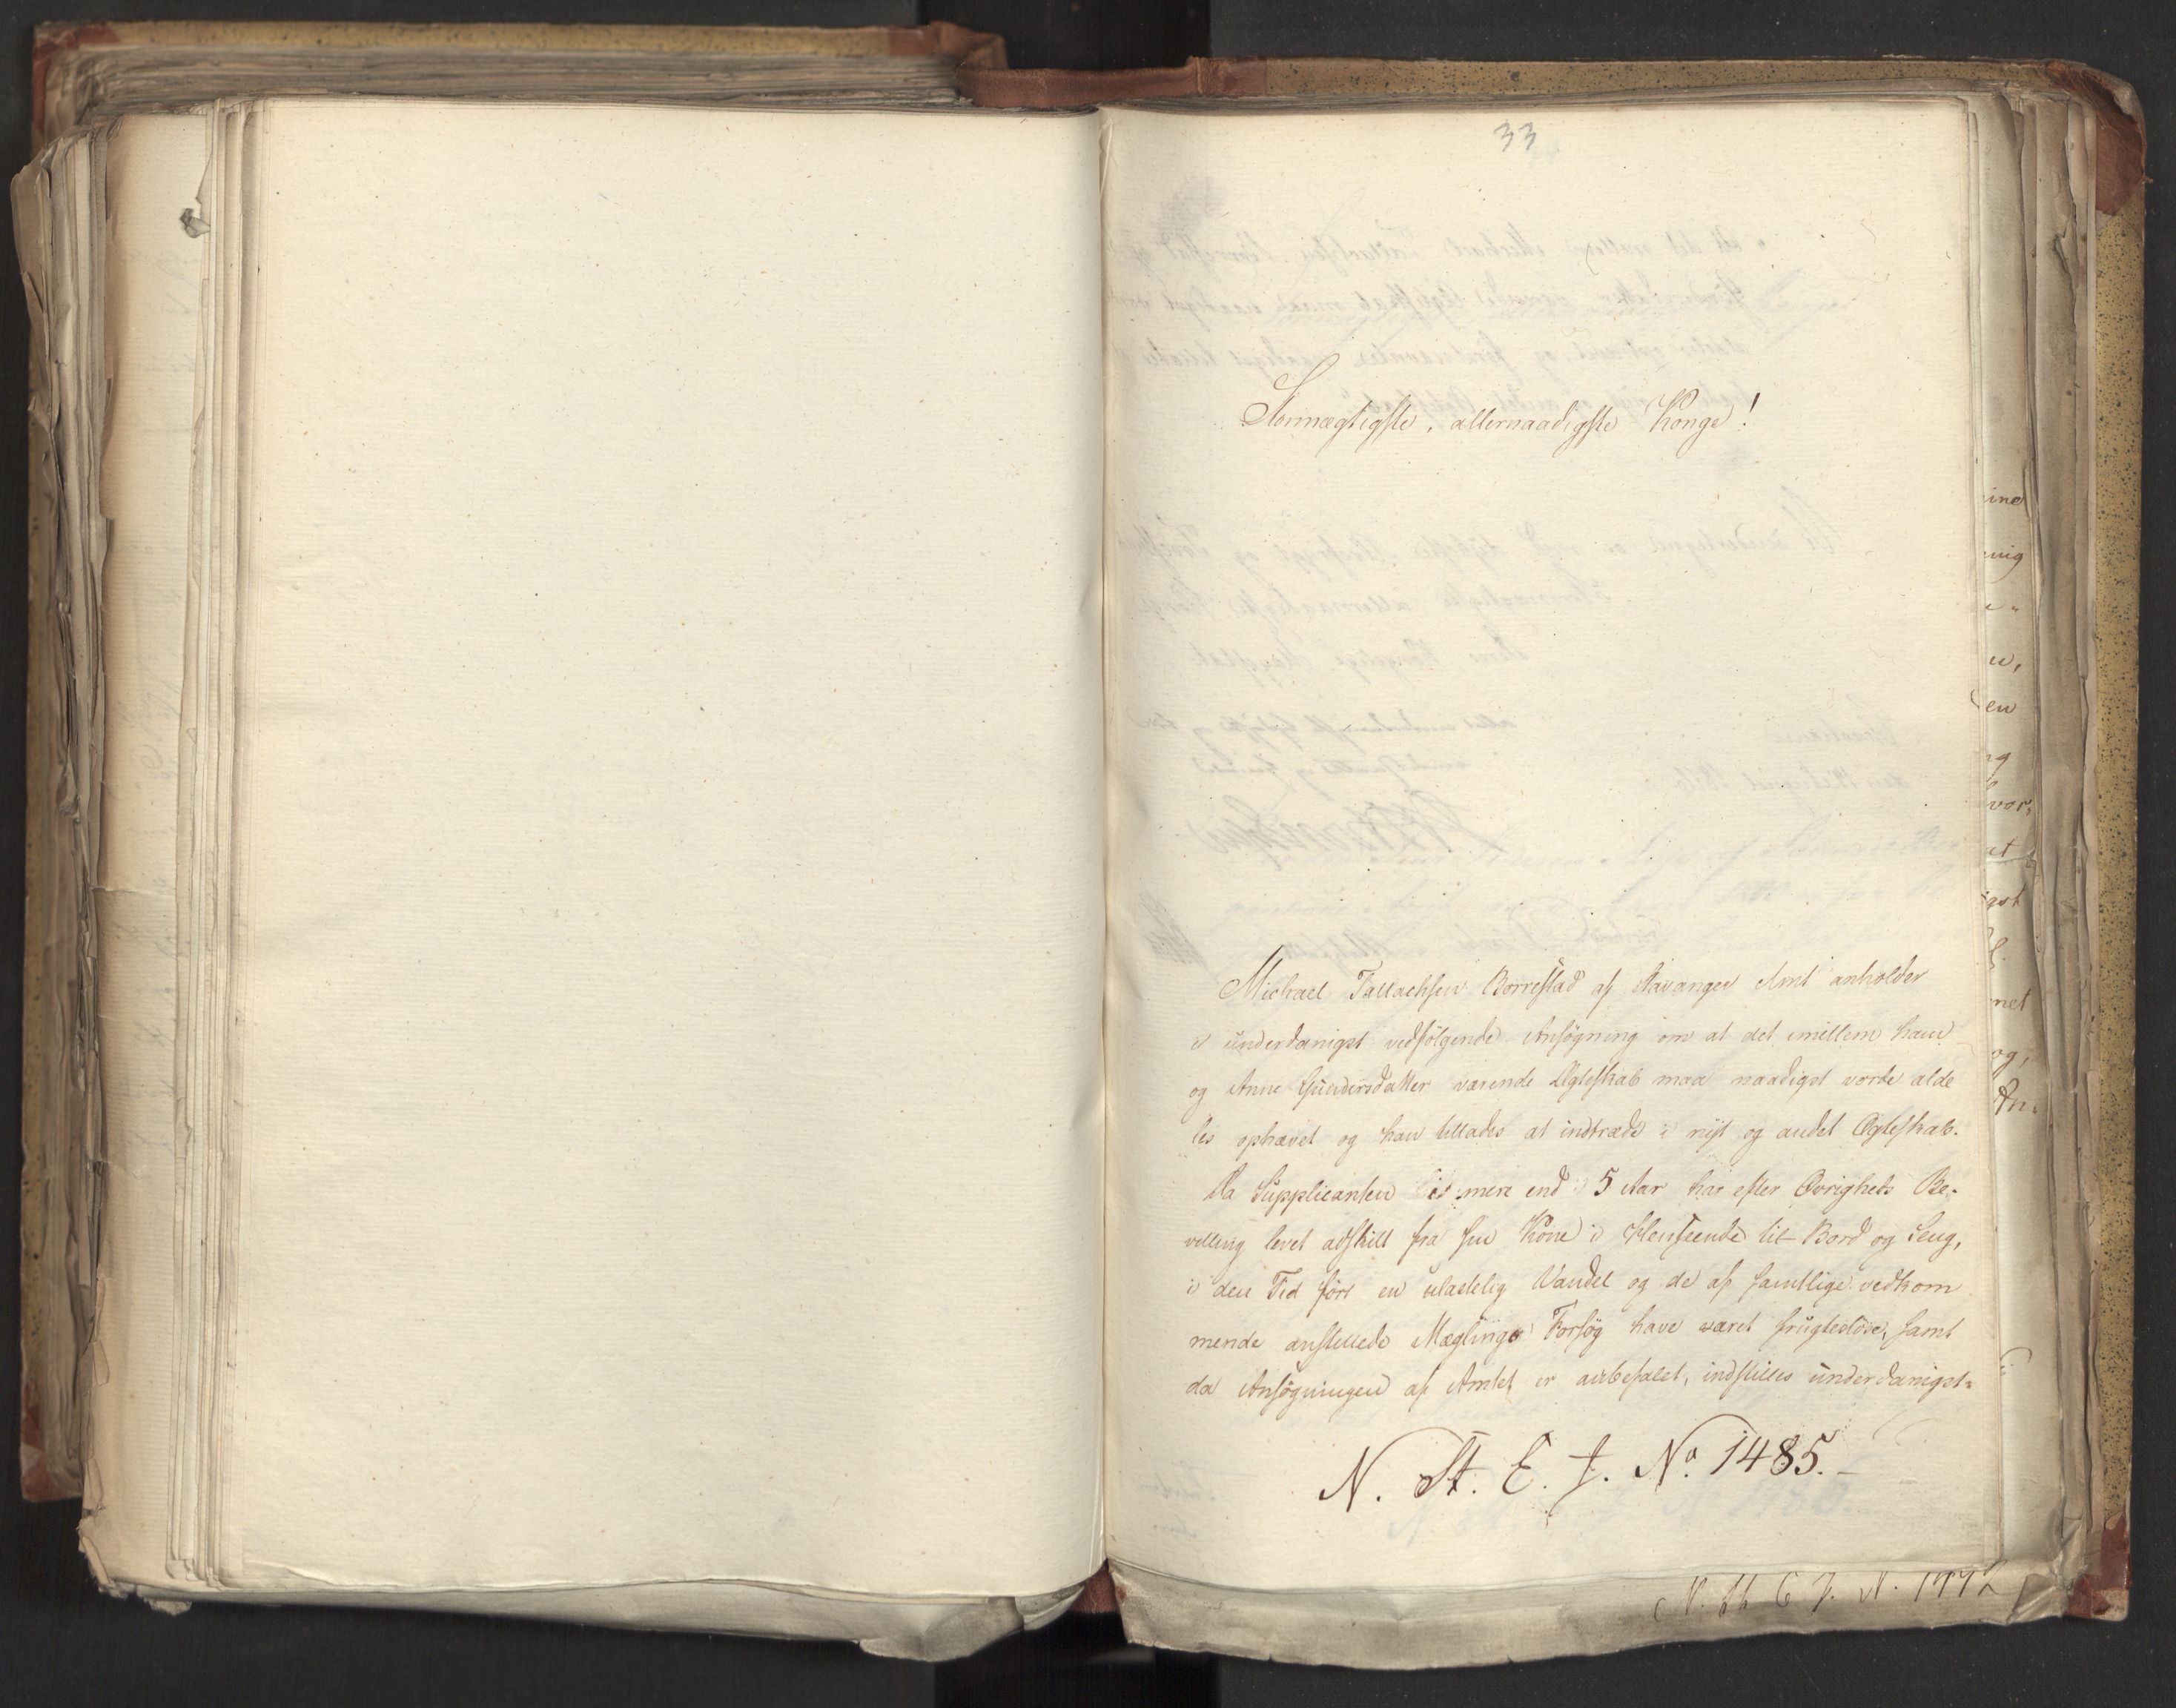 33
Stormægtigste, allernaadigste Konge!
Michael Tallachsen Borrestad af Stavanger Amt anholder
i underdanigst vedfølgende Ansøgning om at det imellem ham
og Anne Gundersdatter værende Ægteskab maa naadigst vorde alde
les ophævet og ham tillades at indtræde i nyt og andet Ægteskab.
Da Supplicanten i mere end 5 Aar har efter Øvrigheds Be-
villing levet adskilt fra sin Kone i Henseende til Bord og Seng,
i den Tid ført en ulastelig Vandel og de af samtlige vedkom
mende anstillede Mæglings Forsøg have været frugtesløse, samt
da Ansøgningen af Amtet er anbefalet, indstilles underdanigst:
N. St. E. J. No. 1485.-
ine
nig
en
og
hvor-
at
gst
net
og,
An-